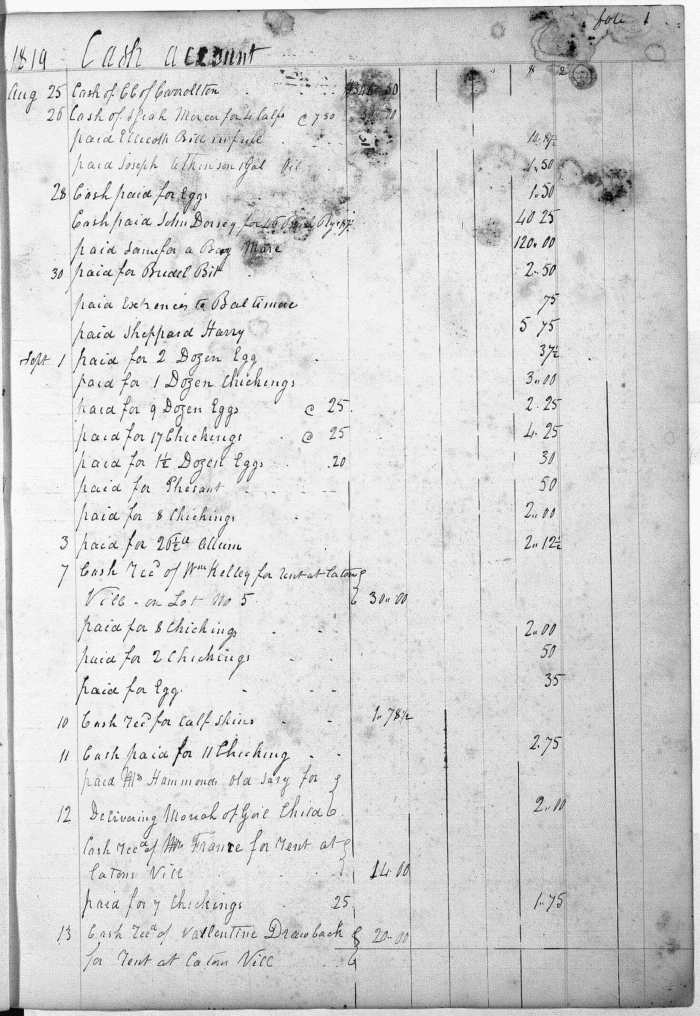 fole 1
1819 Cash account
Aug 25 Cash of CC of Carrollton
26 Cash of Isiah Mercer for 4 Calfs @ 7 50
paid Ellicotts Bill in full
paid Joseph Atkinson 1 Gal Oil 1.50
28 Cash paid for Eggs 1.50
Cash paid John Dorsey for 46 40 25
paid Same for a Bay Mare 120.00
30 paid for Bridel Bit 2.50
paid Expences to Baltimore 75
paid Sheppard Harry 5 75
Sept 1 paid for 2 Dozen Egg 37½
paid for 1 Dozen Chickings 3.00
paid for 9 Dozen Eggs @ 25 2.25
paid for 17 Chickings @ 25 4.25
paid for 1½ Dozen Eggs .20 30
paid for Phesant 50
paid for 8 Chickings 2.00
3 paid for 26½ lb Allum 2.12½
7 Cash Recd of Wm Kelley for rent at Caton
Vill - on Lot No 5 30.00
paid for 8 Chickings 2.00
paid for 2 Chickings 50
paid for Egg 35
10 Cash Recd for Calf skins 1.78½
11 Cash paid for 11 Chicking 2.75
paid Mrs Hammonds Old Sary for
12 Delivering Moriah of Girl Child 2.00
Cash Recd of Mr France for rent at
Catons Vill 14.00
paid for 7 Chickings 25 1.75
13 Cash Recd of Vallentine Drawback 20.00
for rent at Catons Vill